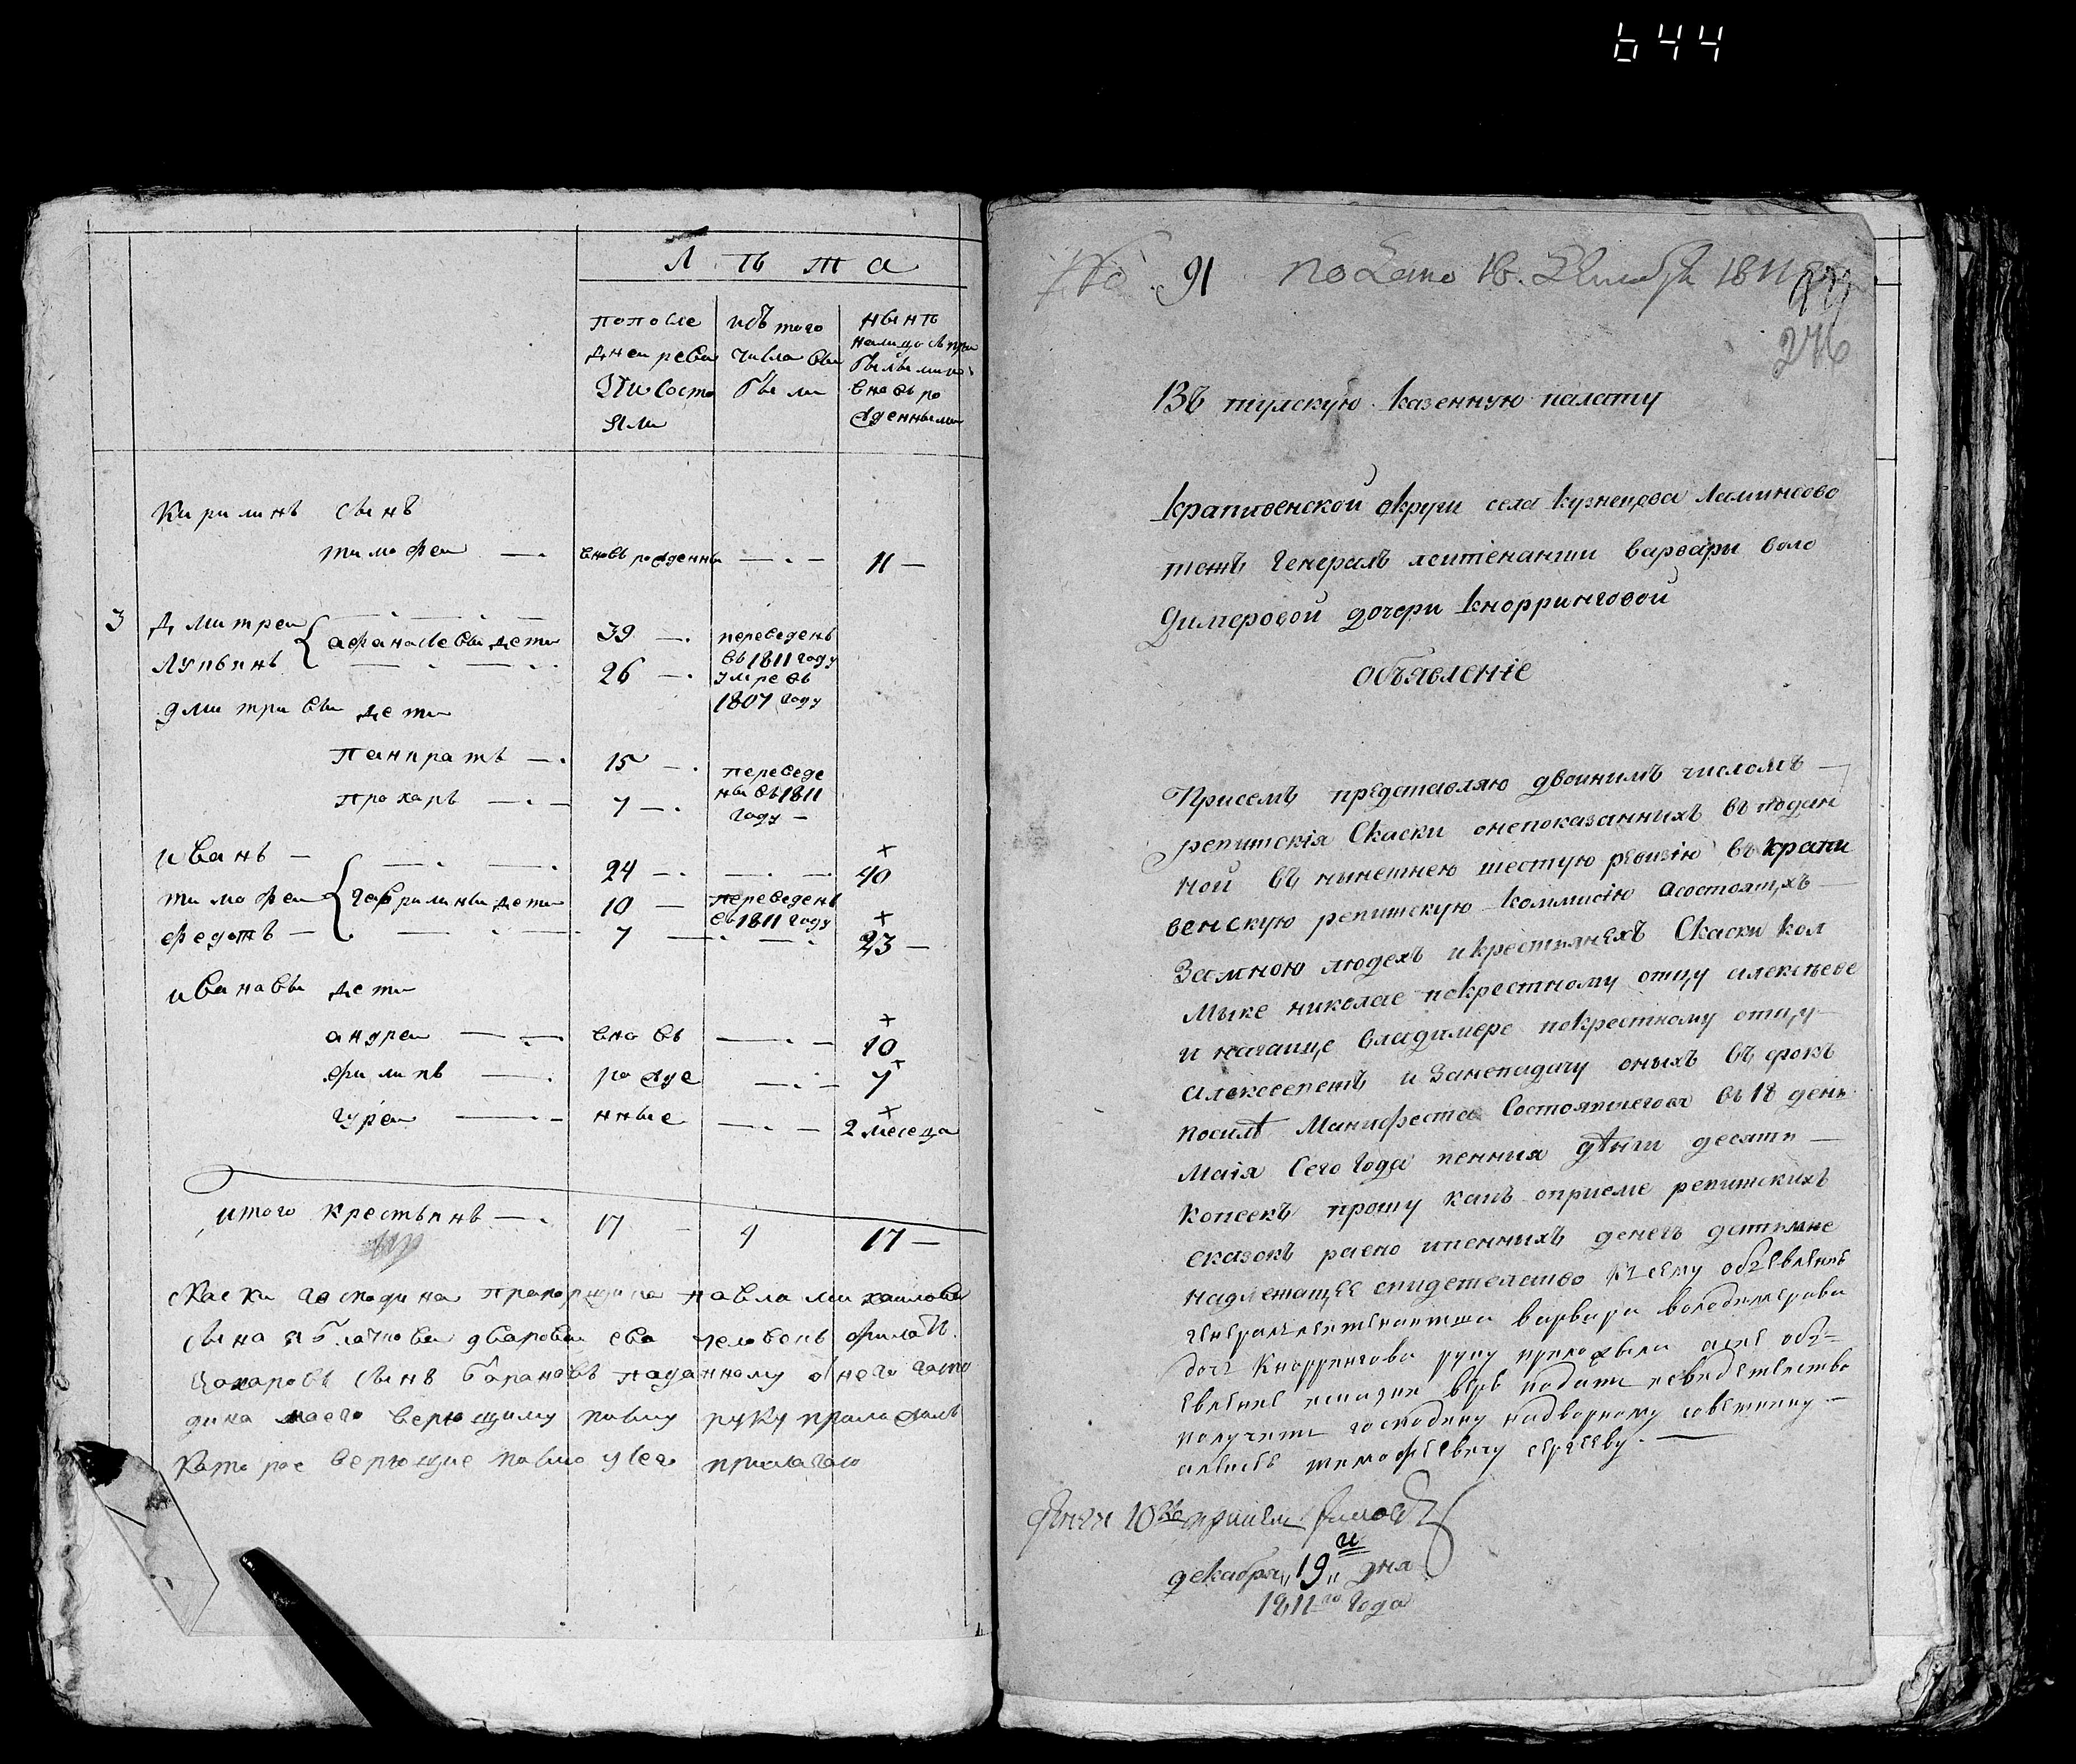 644
Л ѣ т а
попосле
дней реви
зіи состо
яли
изъ того
числа вы
были
нынѣ
налицо
вновь ро
жденными
Кирилинъ сынъ
тимофеи — вновь рожденны — 11 —
3 дмитреи
афанасьевы дети 39 — переведенъ
въ 1811 году
Лупьянъ 26 — умре въ
1807 году
дмитриевы дети
панкратъ — 15 — переведе
ны въ 1811
году —
прохаръ — 7 —
иванъ — 24 — 40
тимофеи гаврилины дети 10 — переведенъ
въ 1811 году
федотъ — 7 — 23 —
ивановы дети
андреи — вновь — 10
филипъ — рожде — 7
гуреи — нные — 2 месеца
итого крестьянъ — 17 — 4 17 —
скаски господина прапорщика павла михаилова
сына дваровои ево человекъ филатъ
захаровъ сынъ барановъ паданному отнего госпо
дина моего верющиму писму руку приложилъ
каторое верющие писмо усего прилагаю
№ 91 подано 18. Декабря 1811
276
Въ тулскую казенную палату
крапивенской округи села кузнецова
генералъ леитенанши варвары воло
димеровой дочери кнорринговой
объявленіе
Присемъ представляю двоинимъ числомъ —
ревитскія скаски онепоказаннихъ вподан
ной въ нынешнею шестую ревизію въ крапи
венскую ревитскую коммисію асостоящихъ —
замною людехъ икрестьянехъ скаски кол
мыке николае покрестному отцу алексѣеве
и нагаице владимере покрестному отцу —
алексеевѣ и занеподачу оныхъ въ срокъ
посилѣ манифеста состоявшегося въ 18 день
маія сего года пенния дѣнги десять —
копеекъ прошу какъ оприеме ревитскихъ
сказокъ равно ипеннихъ денегъ дать мне
надлежащее свидетелство ксему объевление
генералъ леитенантша варвара володимерова
дочь Кноррингова руку приложила асие объ-
евление искаски верю подать исвидетелство
получить господину надворному советнику —
алексею тимофеевичу сергееву. —
декабря „19„ дня
1811го года